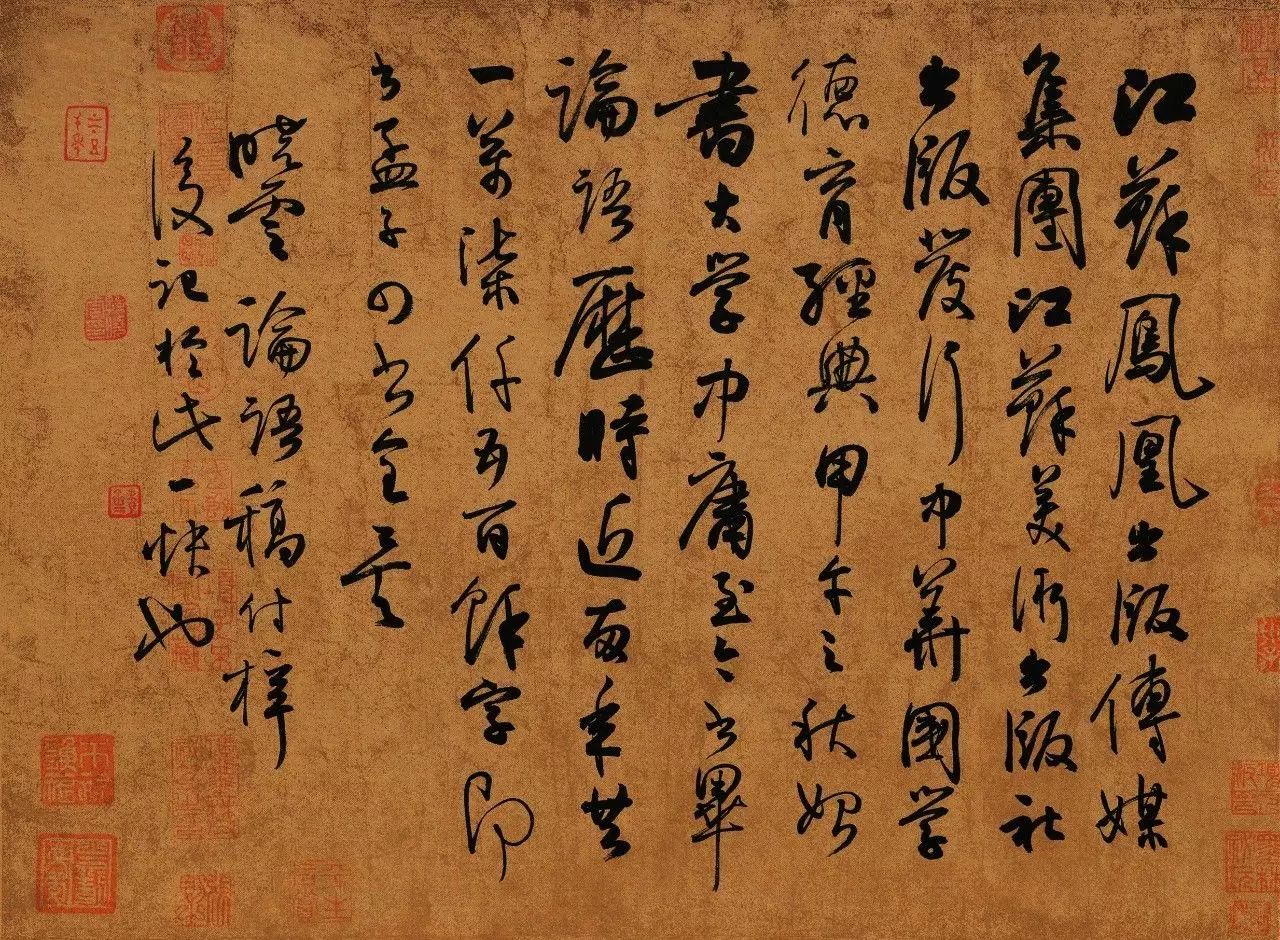 江蘇鳳凰出版傳媒
集團江蘇美術出版社
出版發行中華國学
德育經典甲午之秋始
書大学中庸至今书畢
論語歷時近兩年共
一萬柒仟五百餘字即
书孟子四书全矣
曉雲論語稿付梓
後記於此一快也